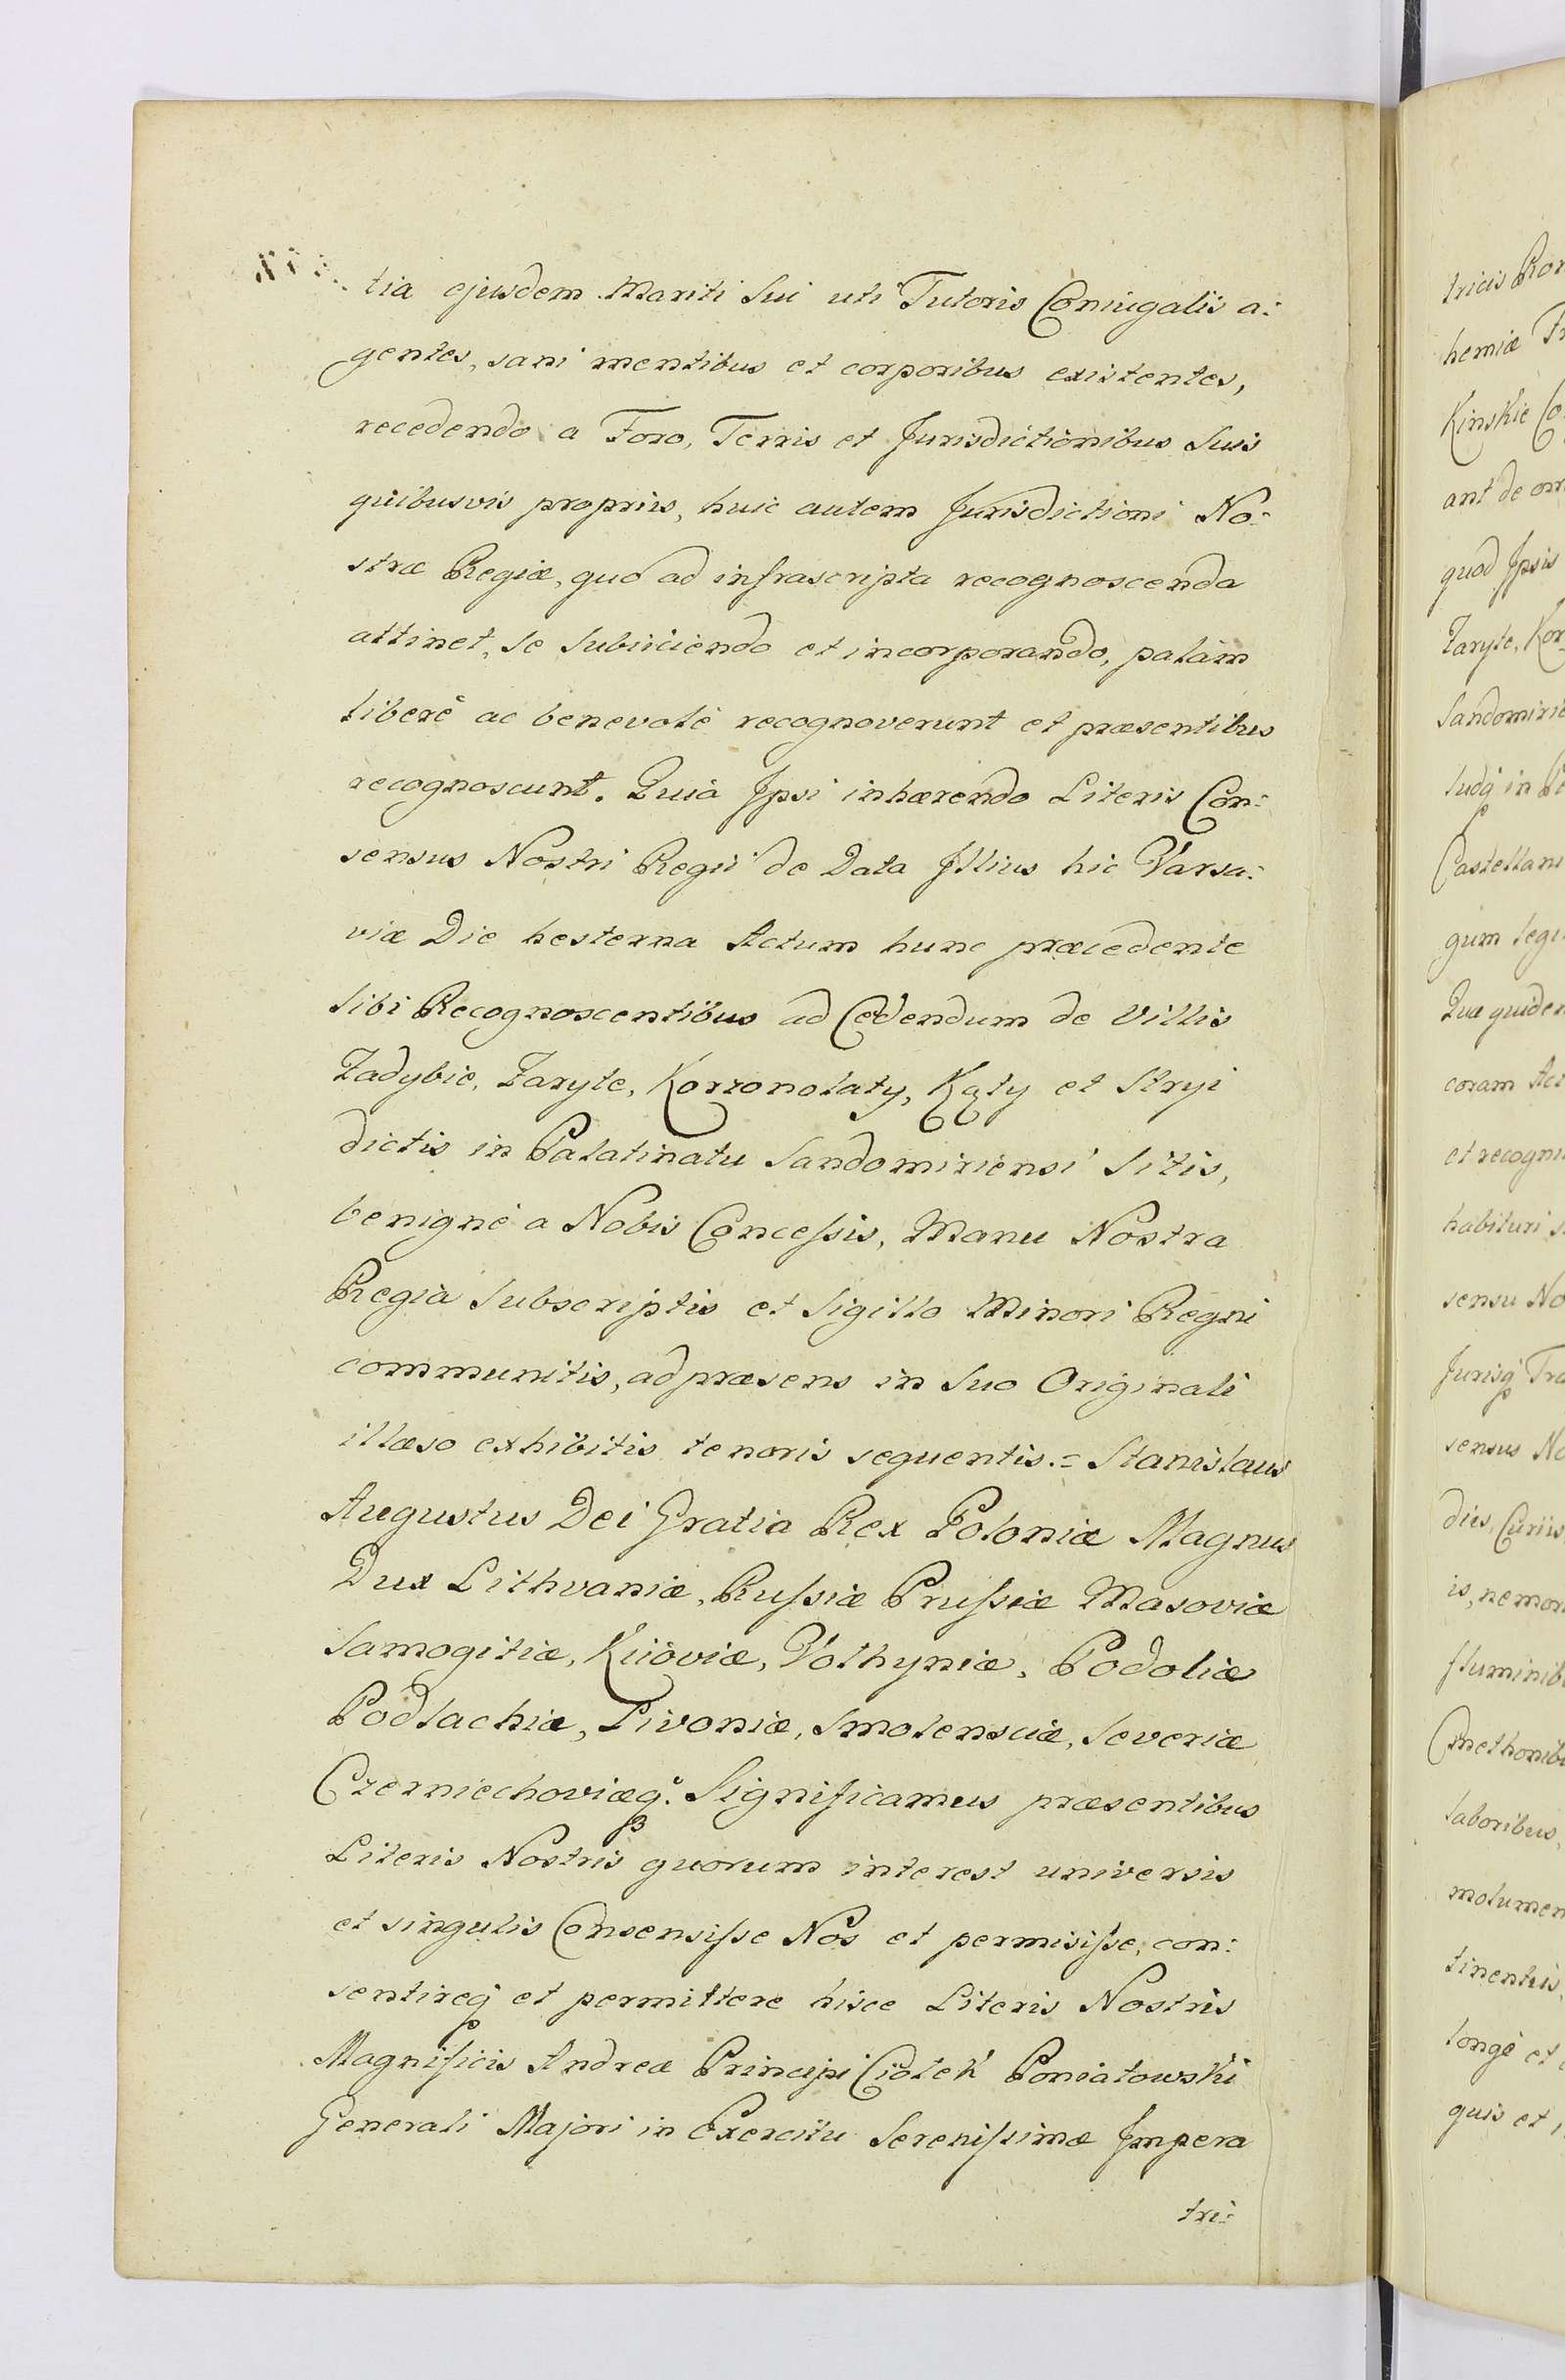 tia ejusdem Mariti Sui uti Tutoris Coniugalis a:
gentes, sani mentibus et corporibus existentes,
recedendo a Foro, Terris et Jurisdictionibus Suis
quibusvis propriis, huic autem Jurisdictioni No:
stræ Regiæ, quo ad infrascripta recognoscenda
attinet, se Subiiciendo et incorporando, palàm
liberè ac benevolè recognoverunt et præsentibus
recognoscunt. Quià Jpsi inhærendo Literis Con:
sensus Nostri Regii de Data Jllius hic Varsa:
viæ Die hesterna Actum hunc præcedente
Sibi Recognoscentibus ad Cedendum de Villis
Zadybie, Zaryte, Korzonołaty, Kąty et Stryi
dictis in Palatinatu Sandomiriensi Sitis,
benignè a Nobis Concessis, Manu Nostra
Regià Subscriptis et Sigillo Minori Regni
communitis, ad præsens in Suo Originali
illæso exhibitis tenoris sequentis.= Stanislaus
Augustus Dei Gratia Rex Poloniæ Magnus
Dux Lithvaniæ, Russiæ Prussiæ Masoviæ
Samogitiæ, Kiioviæ, Volhyniæ, Podoliæ
Podlachiæ, Livoniæ, Smolensciæ, Severiæ
Czerniechoviæq3. Significamus præsentibus
Literis Nostris quorum interest universis
et singulis Consensisse Nos et permisisse, con:
sentireq3 et permittere hisce Literis Nostris
Magnificis Andreæ Principi Ciołek Poniatowski
Generali Majori in Exercitu Serenissimæ Jmpera
tri:
tricis Rom
hemiæ
Kinskie Co
ant de om
quod Jpsis
Zaryte, Kor
Sandomirie
Sudq in
Castellani
gum legi
Quæ quidem
coram Act
et recogni
habituri s
sensu No
Jurisq Tra
sensus No
diis, Curiis
is, nemor
fluminib
Cmethonib
laboribus,
molumen
tinentiis,
longè et
quis et